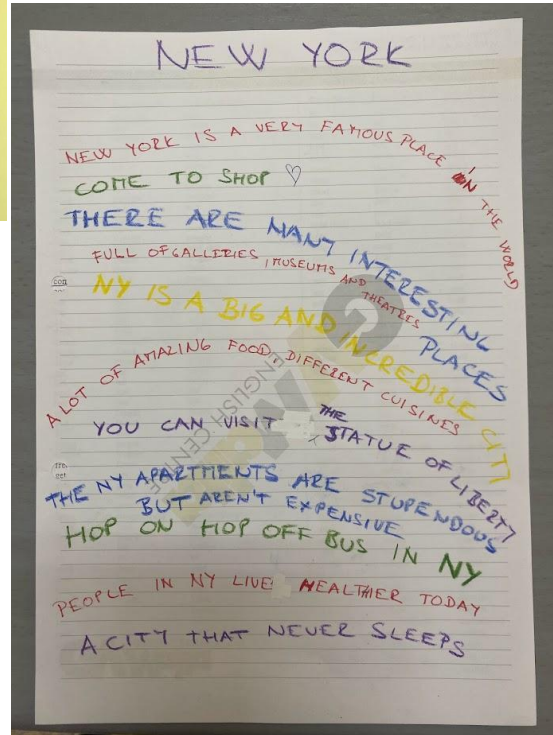 NEW YORK
NEW YORK IS A VERY FAMOUS PLACE IN THE WORLD
COME TO SHOP ♡
THERE ARE MANY INTERESTING PLACES
FULL OF GALLERIES, MUSEUMS AND THEATRES
NY IS A BIG AND INCREDIBLE CITY
A LOT OF AMAZING FOOD, DIFFERENT CUISINES
YOU CAN VISIT THE STATUE OF LIBERTY
THE NY APARTMENTS ARE STUPENDOUS
BUT AREN'T EXPENSIVE
HOP ON HOP OFF BUS IN NY
PEOPLE IN NY LIVE HEALTHER TODAY
A CITY THAT NEVER SLEEPS
ENGLISH CENTRE